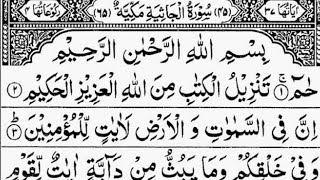 اٰیاتها ۳۷ (۴۵) سُوْرَةُ الْجَاثِيَةِ مَكِّيَّةٌ (۶۵) رکوعاتها ۴
بِسْمِ اللّٰهِ الرَّحْمٰنِ الرَّحِيْمِ
حٰمٓ ۚ﴿۱﴾ تَنْزِيْلُ الْكِتٰبِ مِنَ اللّٰهِ الْعَزِيْزِ الْحَكِيْمِ ﴿۲﴾
اِنَّ فِي السَّمٰوٰتِ وَ الْاَرْضِ لَاٰيٰتٍ لِّلْمُؤْمِنِيْنَ ﴿۳﴾
وَ فِيْ خَلْقِكُمْ وَمَا يَبُثُّ مِنْ دَآبَّةٍ اٰيٰتٌ لِّقَوْمٍ